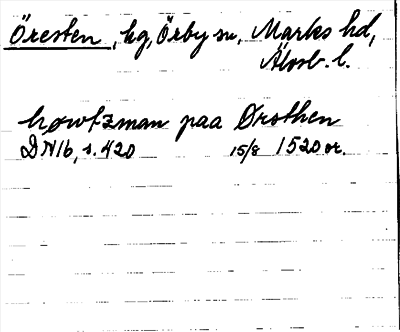 Öresten, kg, Örby sn, Marks hd,
Älvsb. l.
høwfzman paa Ørosthen
DN 16, s. 420 15/8 1520 or.